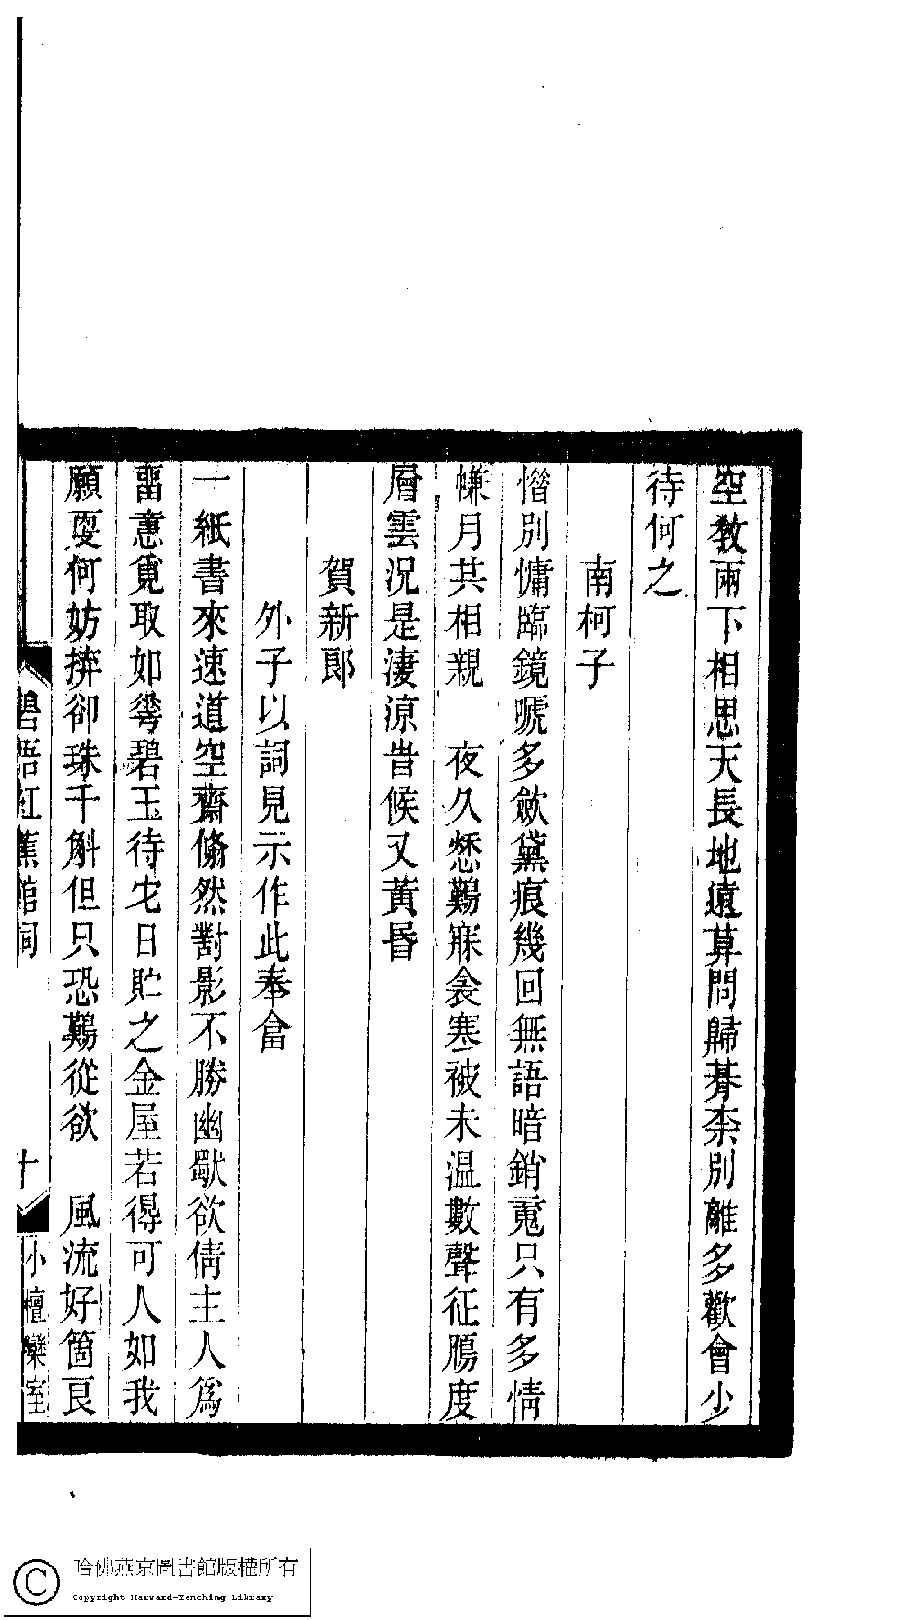 空敎兩下相思天長地遠算問歸朞柰別離多歡會少
待何之
南柯子
惜別慵臨鏡嗁多斂黛痕幾回無語暗銷䰟只有多情
㡘月共相親　夜久愁難寐衾寒被未溫數聲征鴈度
層雲况是淒涼旹候又黃昏
賀新郞
外子以詞見示作此奉畣
一紙書來速道空齋翛然對影不勝幽歜欲倩主人爲
畱意覓取如䓿碧玉待它日貯之金屋若得可人如我
願耍何妨拚卻珠千斛但只恐難從欲　風流好箇良
碧梧紅蕉館詞
十
小檀欒室
哈佛燕京圖書館版權所有
Copyright Harvard-Yenching Library